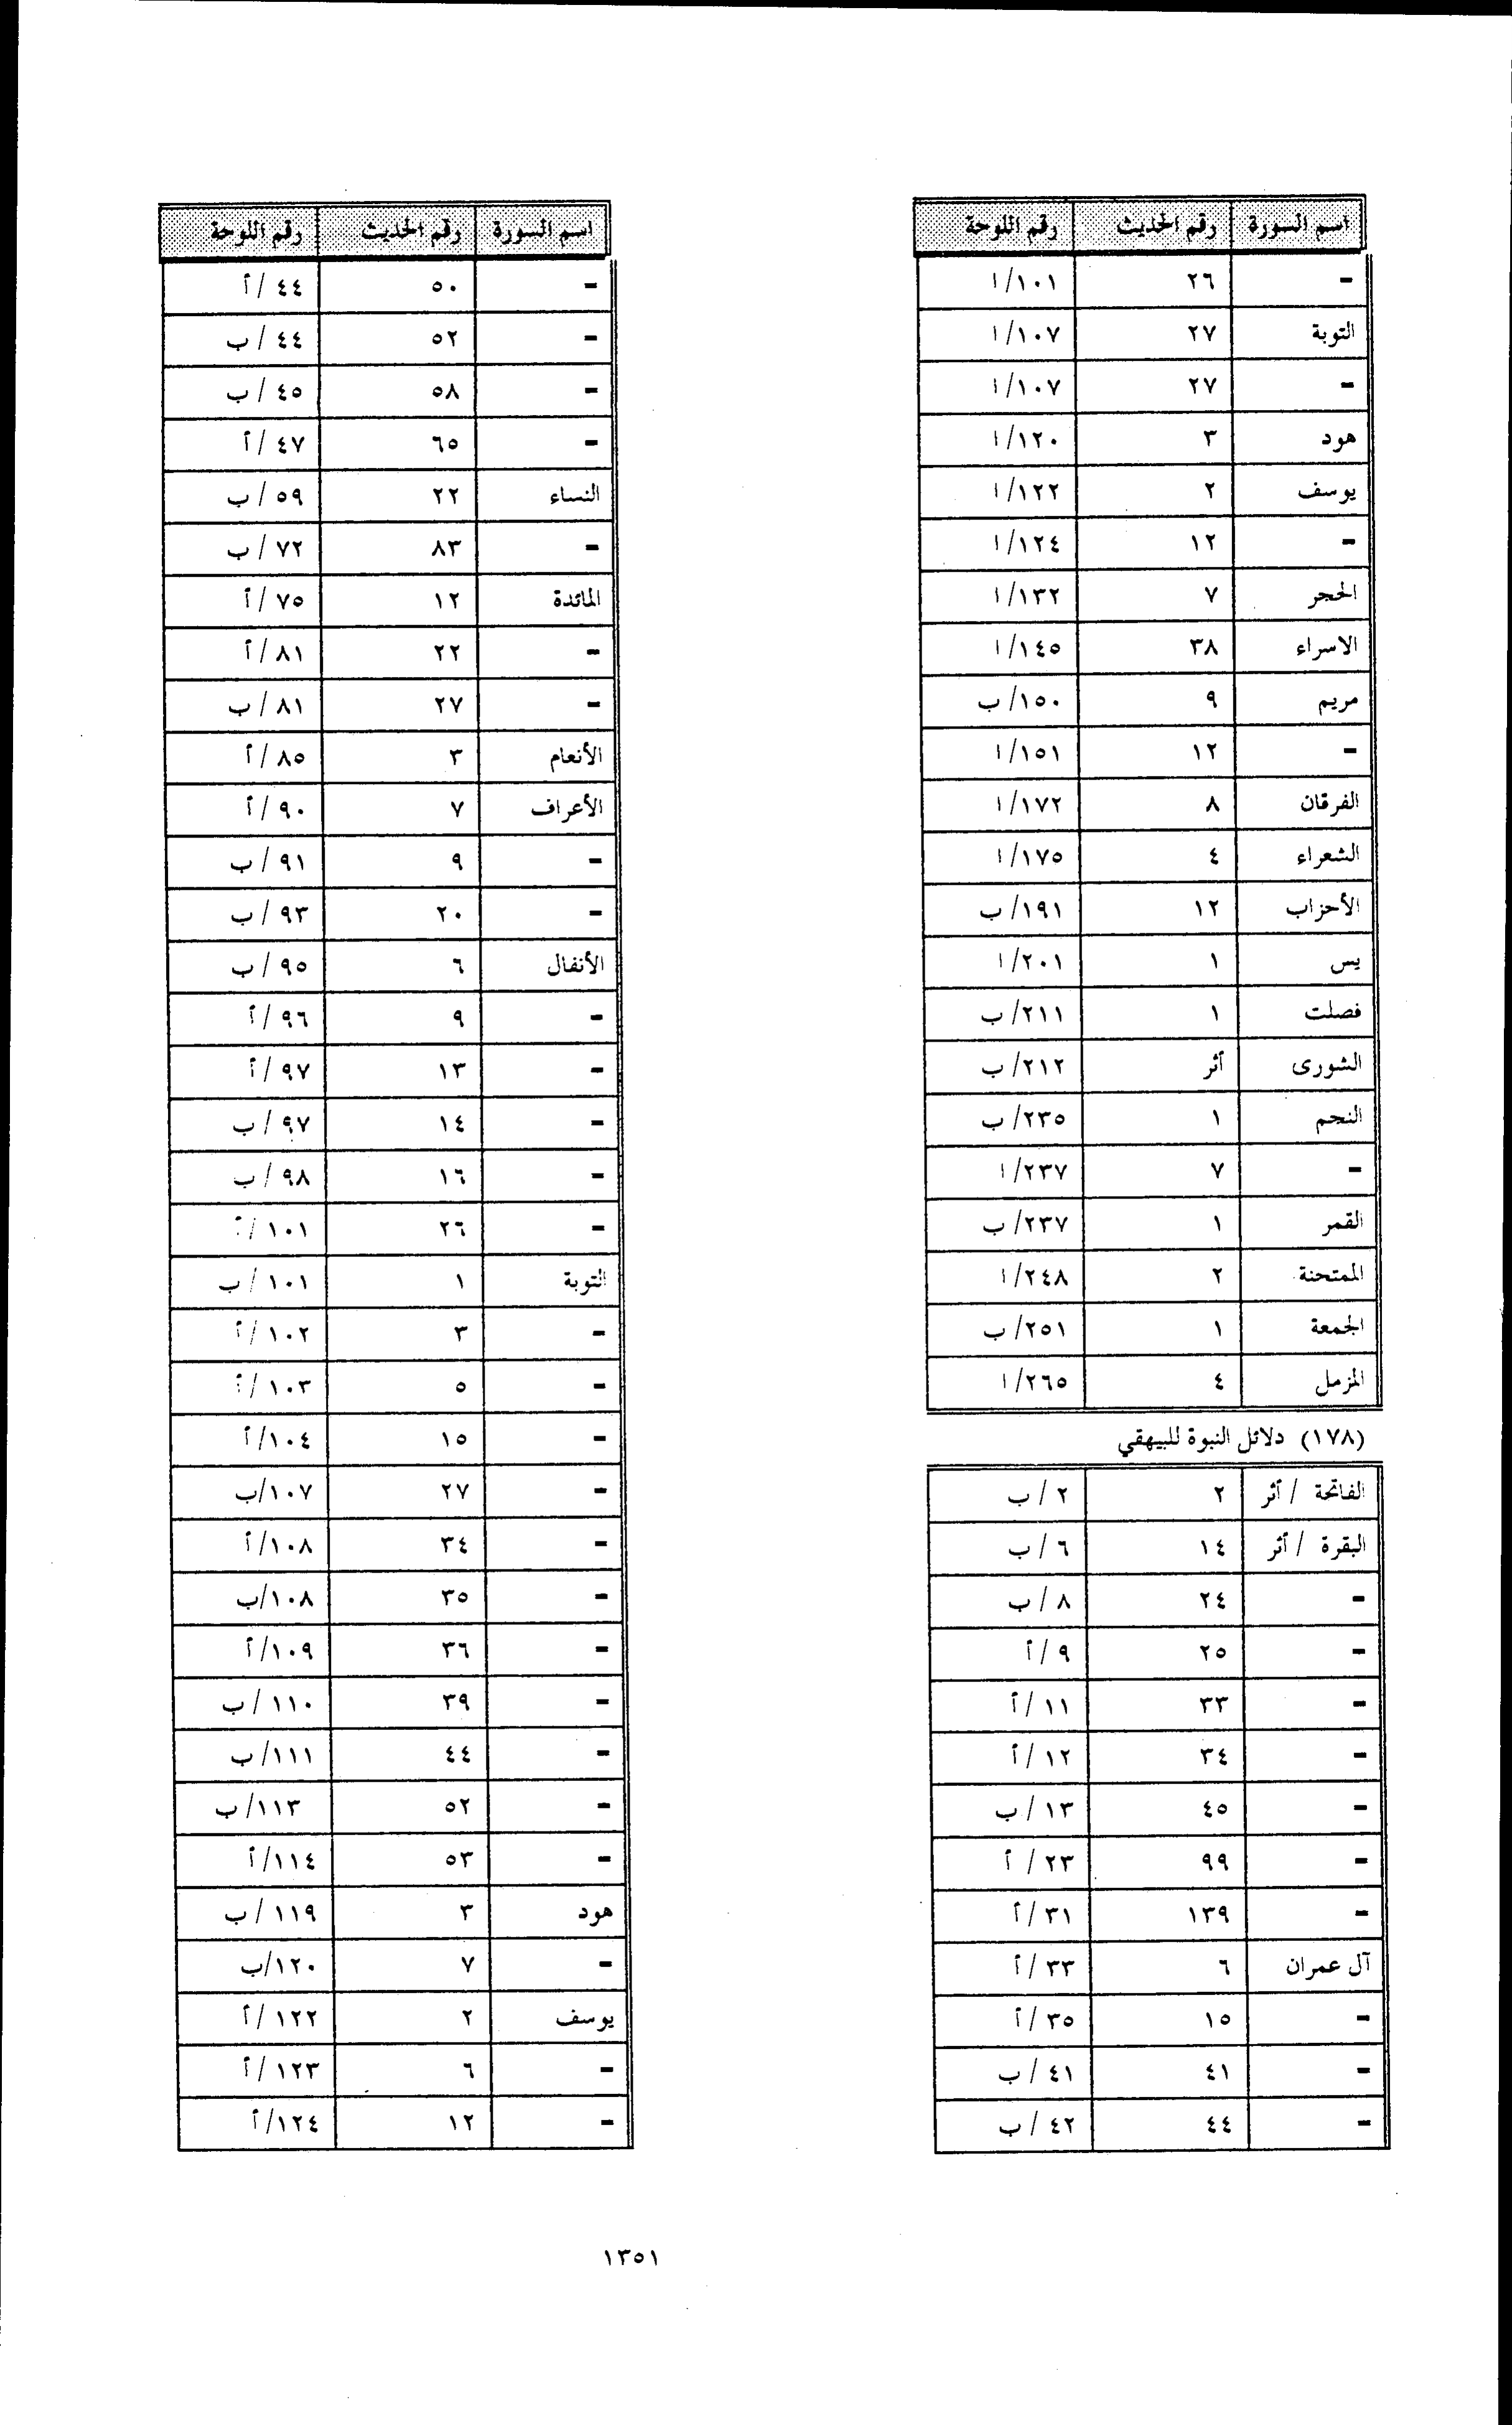 اسم السورة رقم الحديث رقم اللوحة
- ٢٦ ١٠١/ا
التوبة ٢٧ ١٠٧/ا
- ٢٧ ١٠٧/ا
هود ٣ ١٢٠/ا
يوسف ٢ ١٢٢/ا
- ١٢ ١٢٤/ا
الحجر ٧ ١٣٢/ا
الاسراء ٣٨ ١٤٥/ا
مريم ٩ ١٥٠/ب
- ١٢ ١٥١/ا
الفرقان ٨ ١٧٢/ا
الشعراء ٤ ١٧٥/ا
الأحزاب ١٢ ١٩١/ب
يس ١ ٢٠١/ا
فصلت ١ ٢١١/ب
الشورى أثر ٢١٢/ب
النجم ١ ٢٣٥/ب
- ٧ ٢٣٧/ا
القمر ١ ٢٣٧/ب
الممتحنة ٢ ٢٤٨/ا
الجمعة ١ ٢٥١/ب
المزمل ٤ ٢٦٥/ا
(١٧٨) دلائل النبوة للبيهقي
الفاتحة / أثر ٢ ٢/ب
البقرة / أثر ١٤ ٦/ب
- ٢٤ ٨/ب
- ٢٥ ٩/أ
- ٣٣ ١١/أ
- ٣٤ ١٢/أ
- ٤٥ ١٣/ب
- ٩٩ ٢٣/أ
- ١٣٩ ٣١/أ
آل عمران ٦ ٣٣/أ
- ١٥ ٣٥/أ
- ٤١ ٤١/ب
- ٤٤ ٤٢/ب
اسم السورة رقم الحديث رقم اللوحة
- ٥٠ ٤٤/أ
- ٥٢ ٤٤/ب
- ٥٨ ٤٥/ب
- ٦٥ ٤٧/أ
النساء ٢٢ ٥٩/ب
- ٨٣ ٧٢/ب
المائدة ١٢ ٧٥/أ
- ٢٢ ٨١/أ
- ٢٧ ٨١/ب
الأنعام ٣ ٨٥/أ
الأعراف ٧ ٩٠/أ
- ٩ ٩١/ب
- ٢٠ ٩٣/ب
الأنفال ٦ ٩٥/ب
- ٩ ٩٦/أ
- ١٣ ٩٧/أ
- ١٤ ٩٧/ب
- ١٦ ٩٨/ب
- ٢٦ ١٠١/أ
التوبة ١ ١٠١/ب
- ٣ ١٠٢/أ
- ٥ ١٠٣/أ
- ١٥ ١٠٤/أ
- ٢٧ ١٠٧/ب
- ٣٤ ١٠٨/أ
- ٣٥ ١٠٨/ب
- ٣٦ ١٠٩/أ
- ٣٩ ١١٠/ب
- ٤٤ ١١١/ب
- ٥٢ ١١٣/ب
- ٥٣ ١١٤/أ
هود ٣ ١١٩/ب
- ٧ ١٢٠/ب
يوسف ٢ ١٢٢/أ
- ٦ ١٢٣/أ
- ١٢ ١٢٤/أ
١٣٥١